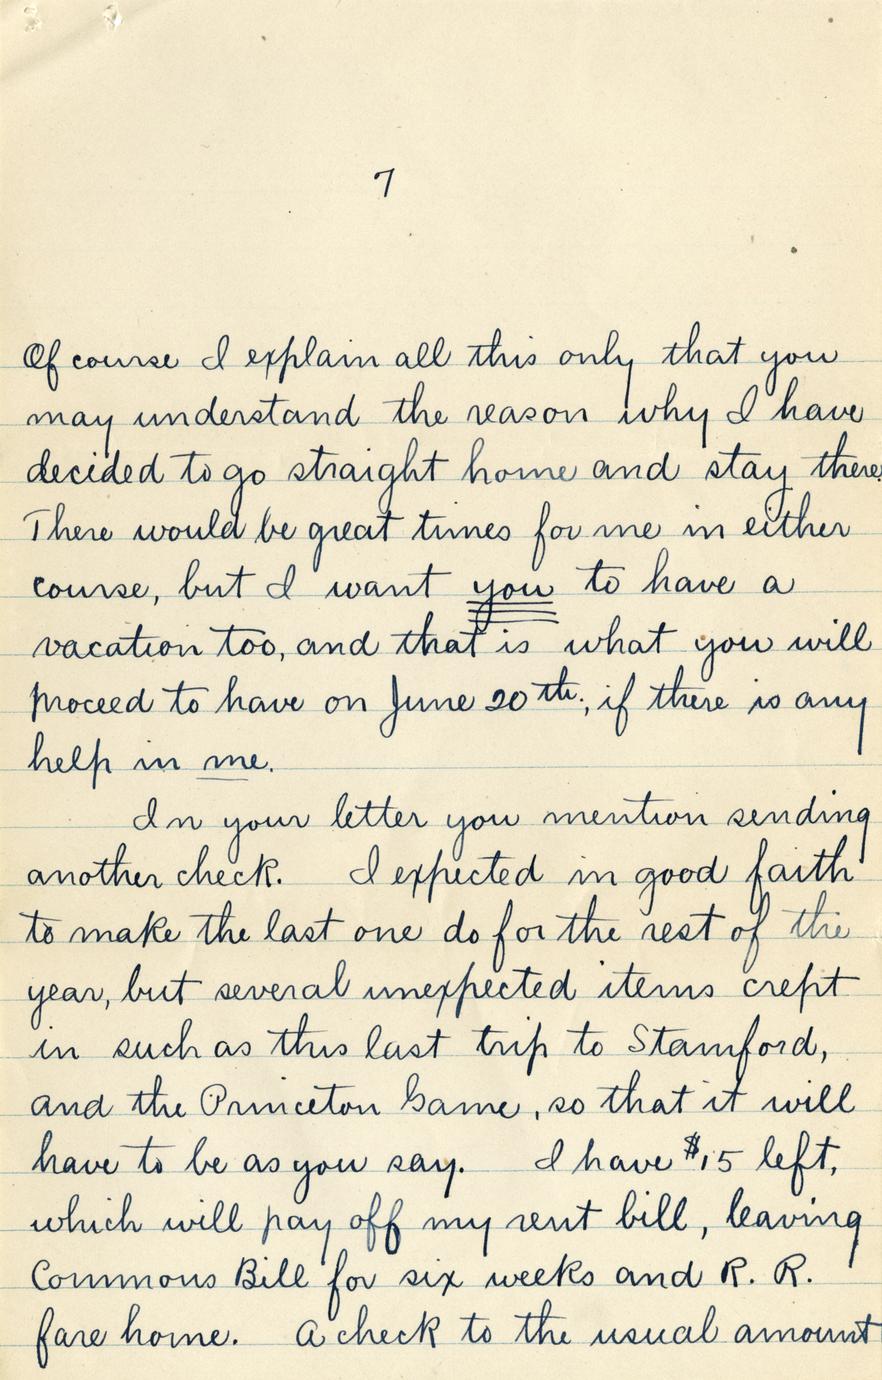 7
Of course I explain all this only that you
may understand the reason why I have
decided to go straight home and stay there.
There would be great times for me in either
course, but I want you to have a
vacation too, and that is what you will
proceed to have on June 20th., if there is any
help in me.
In your letter you mention sending
another check. I expected in good faith
to make the last one do for the rest of the
year, but several unexpected items crept
in such as this last trip to Stamford,
and the Princeton Game, so that it will
have to be as you say. I have $15 left,
which will pay off my rent bill, leaving
Commons Bill for six weeks and R. R.
fare home. A check to the usual amount